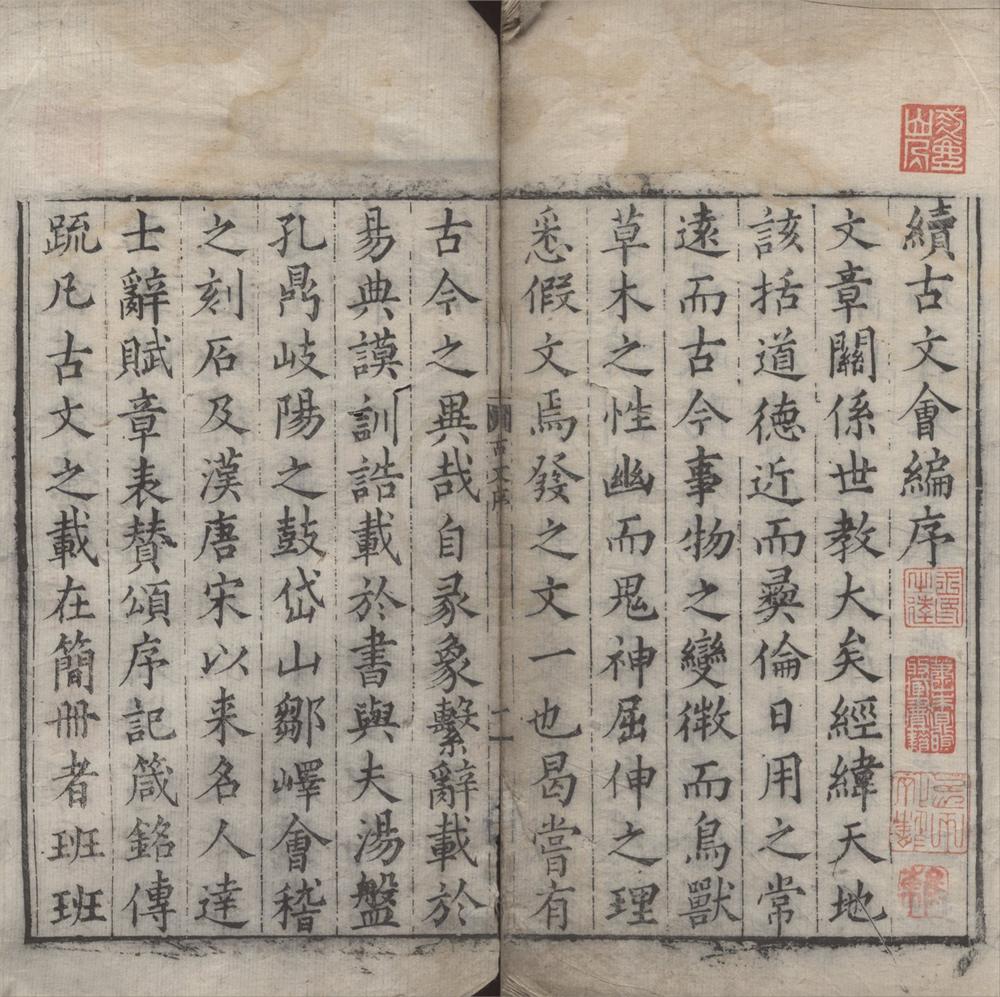 續古文會編序
文章關係世教大矣經緯天地
該括道德近而彜倫日用之常
遠而古今事物之變微而鳥獸
草木之性幽而鬼神屈伸之理
悉假文焉發之文一也曷嘗有
古文序
一
古今之異哉自彖象繫辭載於
易典謨訓誥載於書與夫湯盤
孔鼎岐陽之鼓岱山鄒嶧會稽
之刻石及漢唐宋以来名人達
士辭賦章表賛頌序記箴銘傳
䟽凡古文之載在簡冊者班班